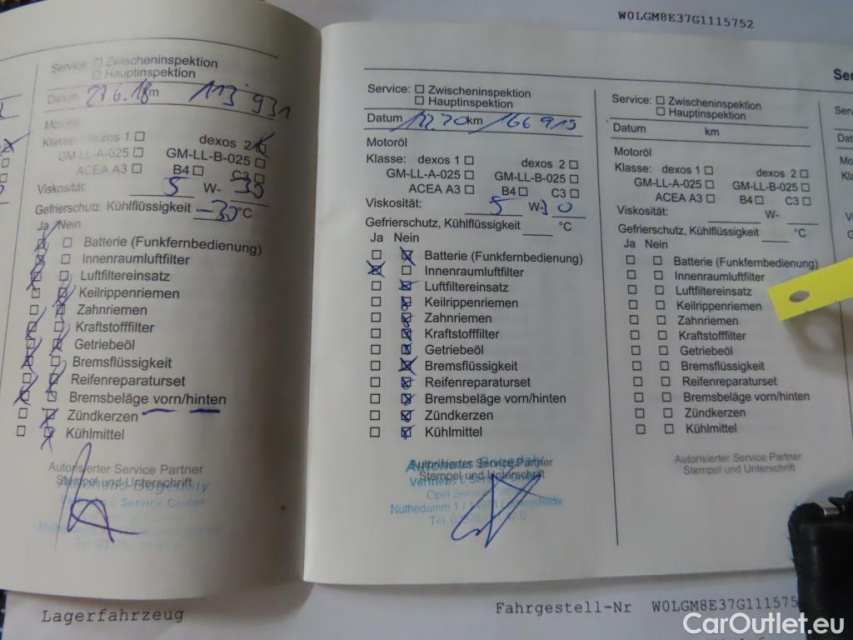 W0LGM8E37G1115752
Service: Zwischeninspektion
Hauptinspektion
Datum 27.6.18 km 113 931
Motoröl
Klasse: dexos 1 dexos 2
GM-LL-A-025 GM-LL-B-025
ACEA A3 B4 C3
Viskosität: 5 W- 30
Gefrierschutz, Kühlflüssigkeit -35 °C
Ja Nein
Batterie (Funkfernbedienung)
Innenraumluftfilter
Luftfiltereinsatz
Keilrippenriemen
Zahnriemen
Kraftstofffilter
Getriebeöl
Bremsflüssigkeit
Reifenreparaturset
Bremsbeläge vorn/hinten
Zündkerzen
Kühlmittel
Autorisierter Service Partner
Stempel und Unterschrift
Service: Zwischeninspektion
Hauptinspektion
Datum 12.20 km 166 915
Motoröl
Klasse: dexos 1 dexos 2
GM-LL-A-025 GM-LL-B-025
ACEA A3 B4 C3
Viskosität: 5 W- 30
Gefrierschutz, Kühlflüssigkeit °C
Ja Nein
Batterie (Funkfernbedienung)
Innenraumluftfilter
Luftfiltereinsatz
Keilrippenriemen
Zahnriemen
Kraftstofffilter
Getriebeöl
Bremsflüssigkeit
Reifenreparaturset
Bremsbeläge vorn/hinten
Zündkerzen
Kühlmittel
Autorisierter Service Partner
Stempel und Unterschrift
Opel Service
Nuthedamm 1
Service: Zwischeninspektion
Hauptinspektion
Datum km
Motoröl
Klasse: dexos 1 dexos 2
GM-LL-A-025 GM-LL-B-025
ACEA A3 B4 C3
Viskosität: W-
Gefrierschutz, Kühlflüssigkeit °C
Ja Nein
Batterie (Funkfernbedienung)
Innenraumluftfilter
Luftfiltereinsatz
Keilrippenriemen
Zahnriemen
Kraftstofffilter
Getriebeöl
Bremsflüssigkeit
Reifenreparaturset
Bremsbeläge vorn/hinten
Zündkerzen
Kühlmittel
Autorisierter Service Partner
Stempel und Unterschrift
Lagerfahrzeug
Fahrgestell-Nr W0LGM8E37G111575
CarOutlet.eu